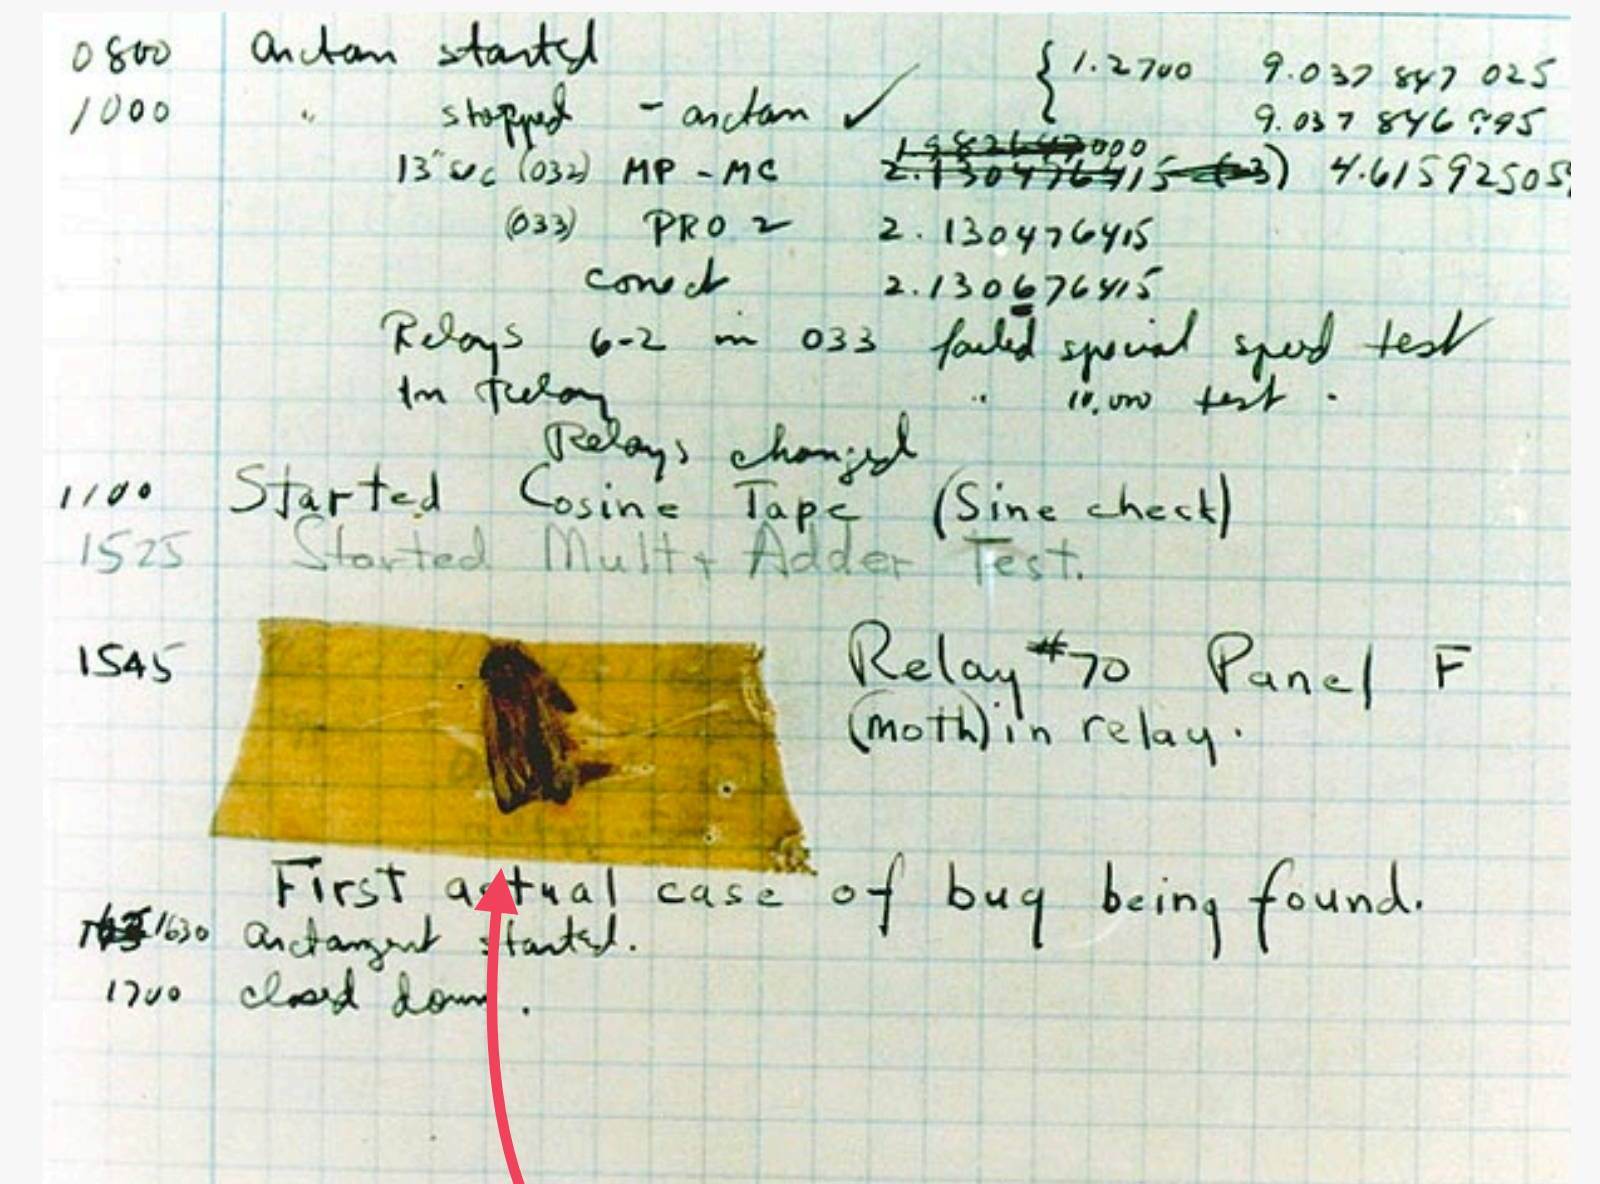 0800 arctan started { 1.2700 9.037 847 025
1000 " stopped - arctan ✓ 9.037 846 995
13"sec (032) MP - MC 1.982647000
2.130476415 (-3) 4.615925059
(033) PRO 2 2.130476415
correct 2.130676415
Relays 6-2 in 033 failed special speed test
In Relay " 10,000 test .
Relays changed
1100 Started Cosine Tape (Sine check)
1525 Started Mult + Adder Test.
1545 Relay #70 Panel F
(moth) in relay.
First actual case of bug being found.
1630 arctangent started.
1700 closed down.